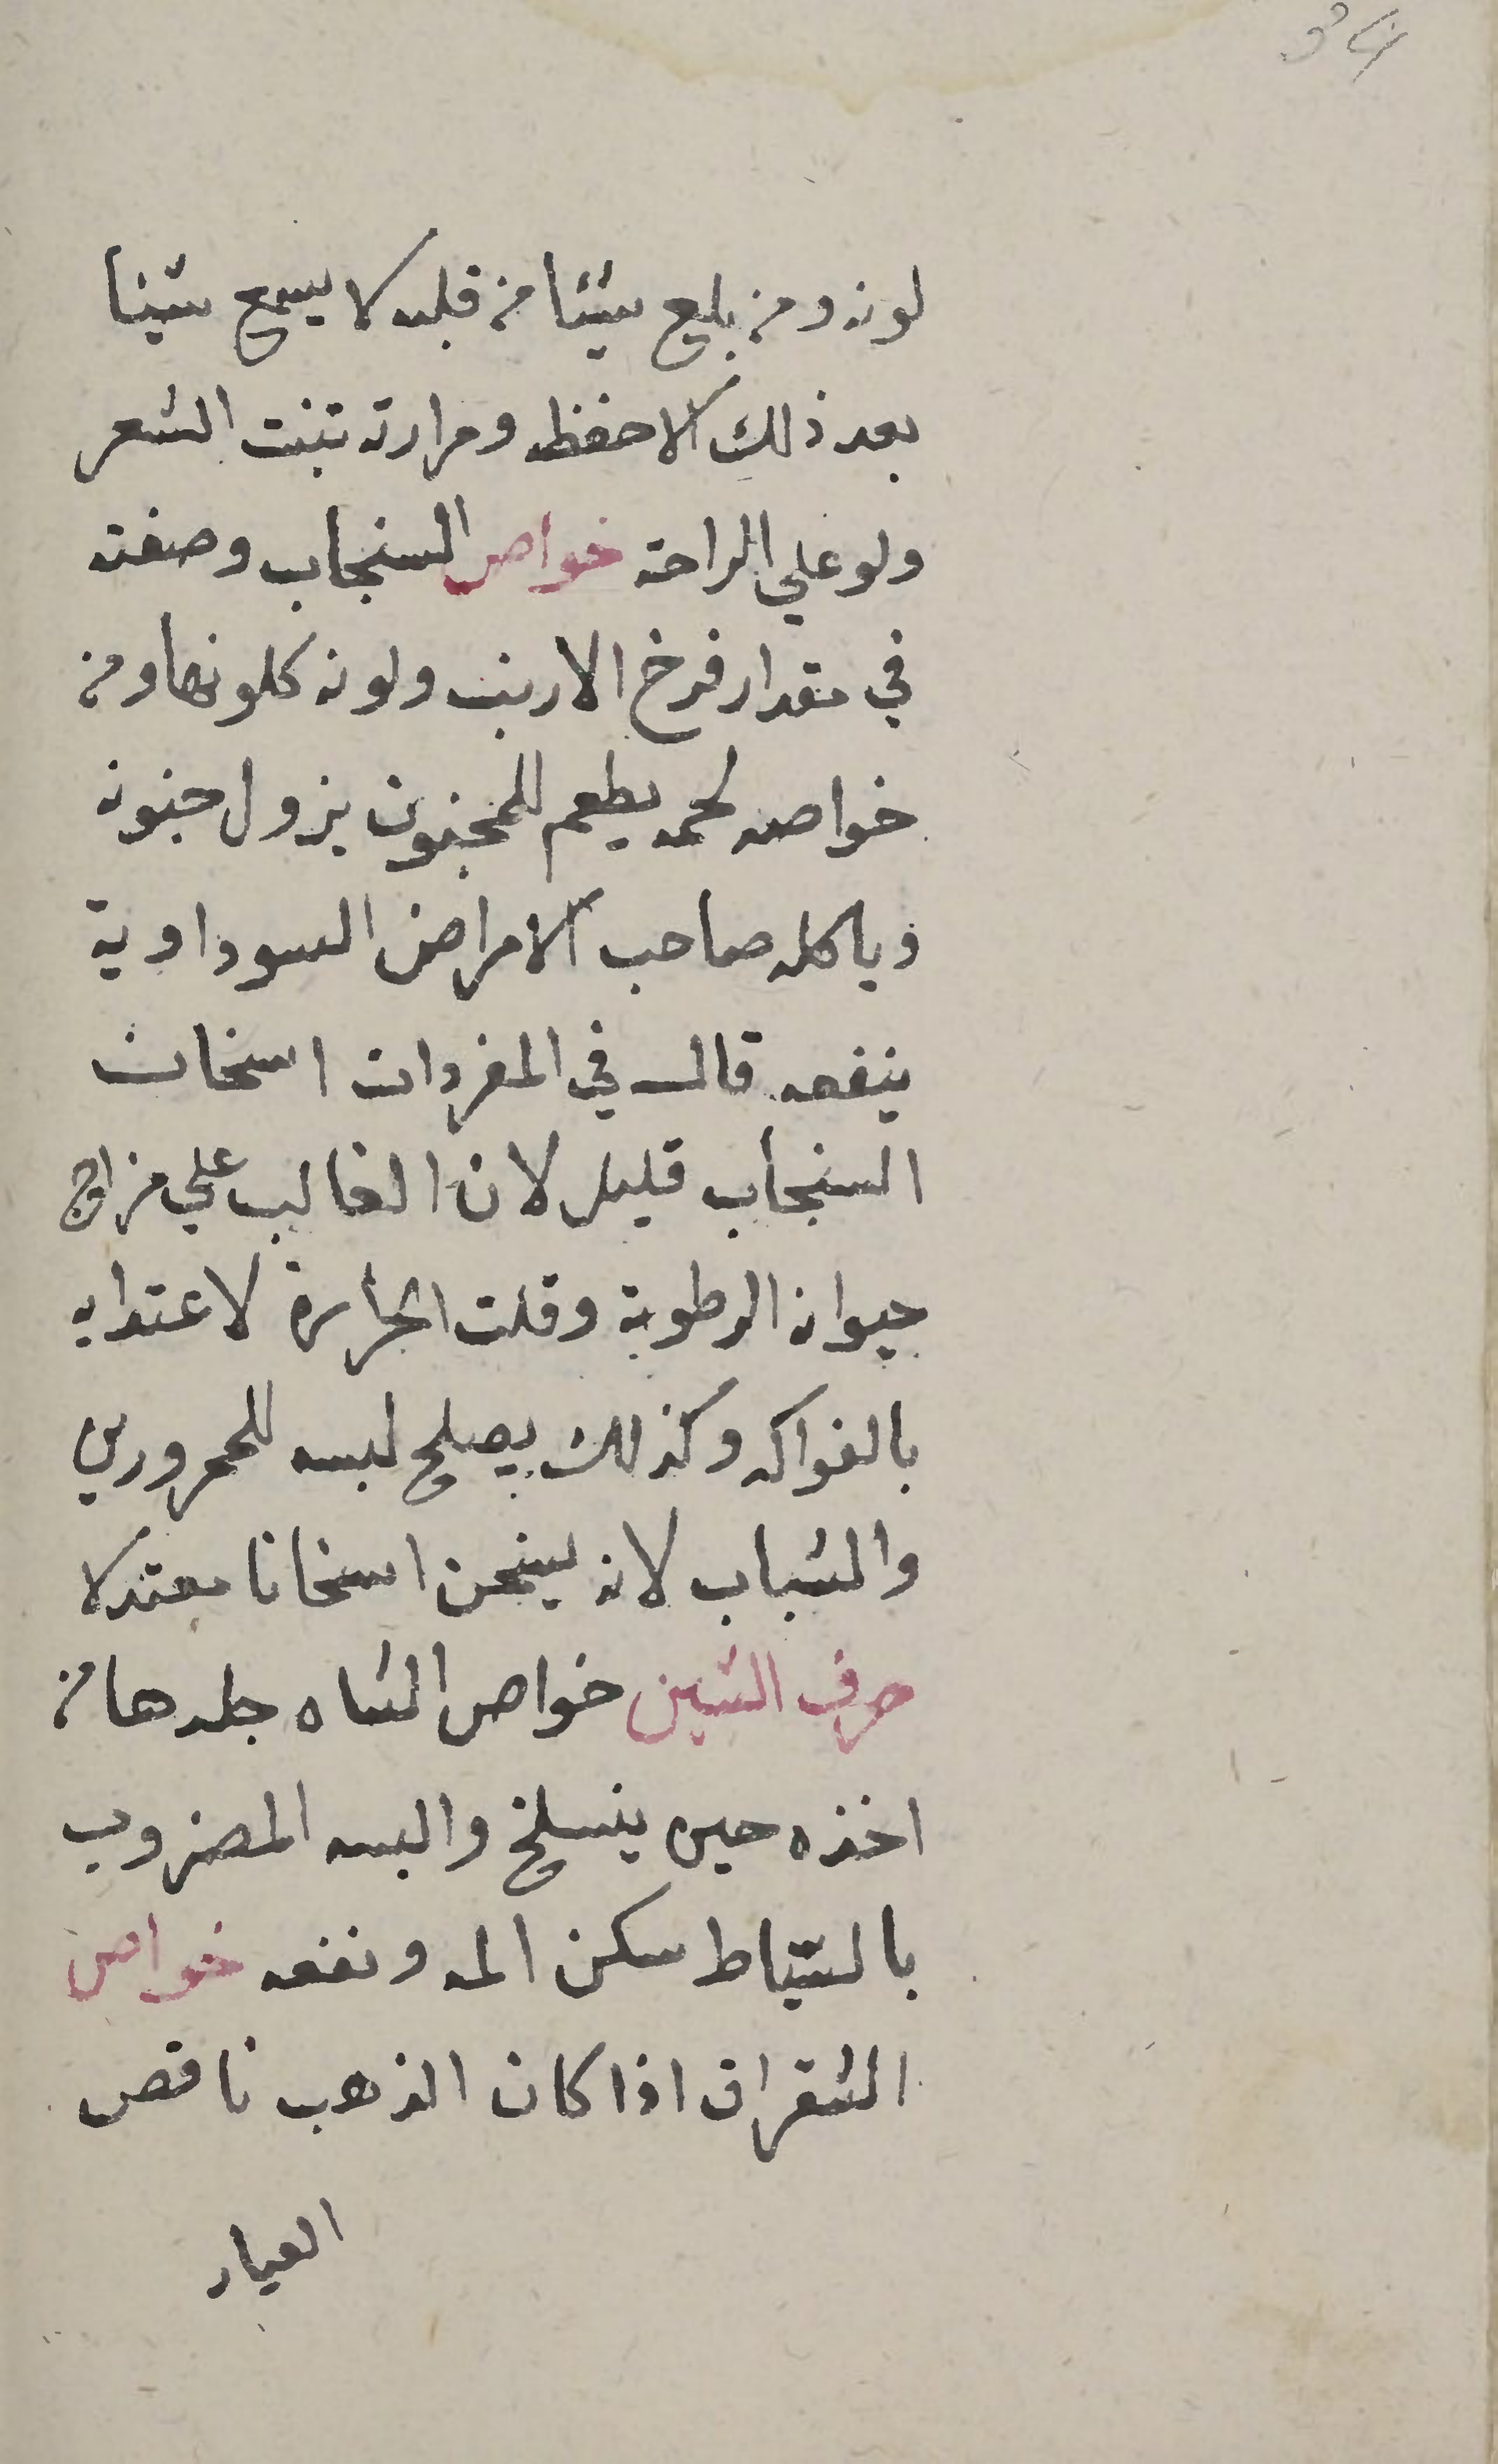 34
لونه ومن بلع شيئا من قلبه لا يسمع شيئا
بعد ذلك الا حفظه ومرارته تنبت الشعر
ولو علي الراحة خواص السنجاب وصفته
في مقدار فرخ الارنب ولونه كلونها ومن
خواصه لحمه يطعم للمجنون يزول جنونه
وياكله صاحب الامراض السوداوية
ينفعه قال في المفردات اسخان
السنجاب قليل لان الغالب علي مزاج
حيوانه الرطوبة وقلت الحرارة لاعتدايه
بالفواكه وكذلك يصلح لبسه للمحرورين
والشباب لانه يسخن اسخانا معتدلا
حرف الشين خواص الشاه جلدها من
اخذه حين ينسلخ والبسه المضروب
بالسياط سكن المه ونفعه خواص
الشقراق اذا كان الذهب ناقص
العيار